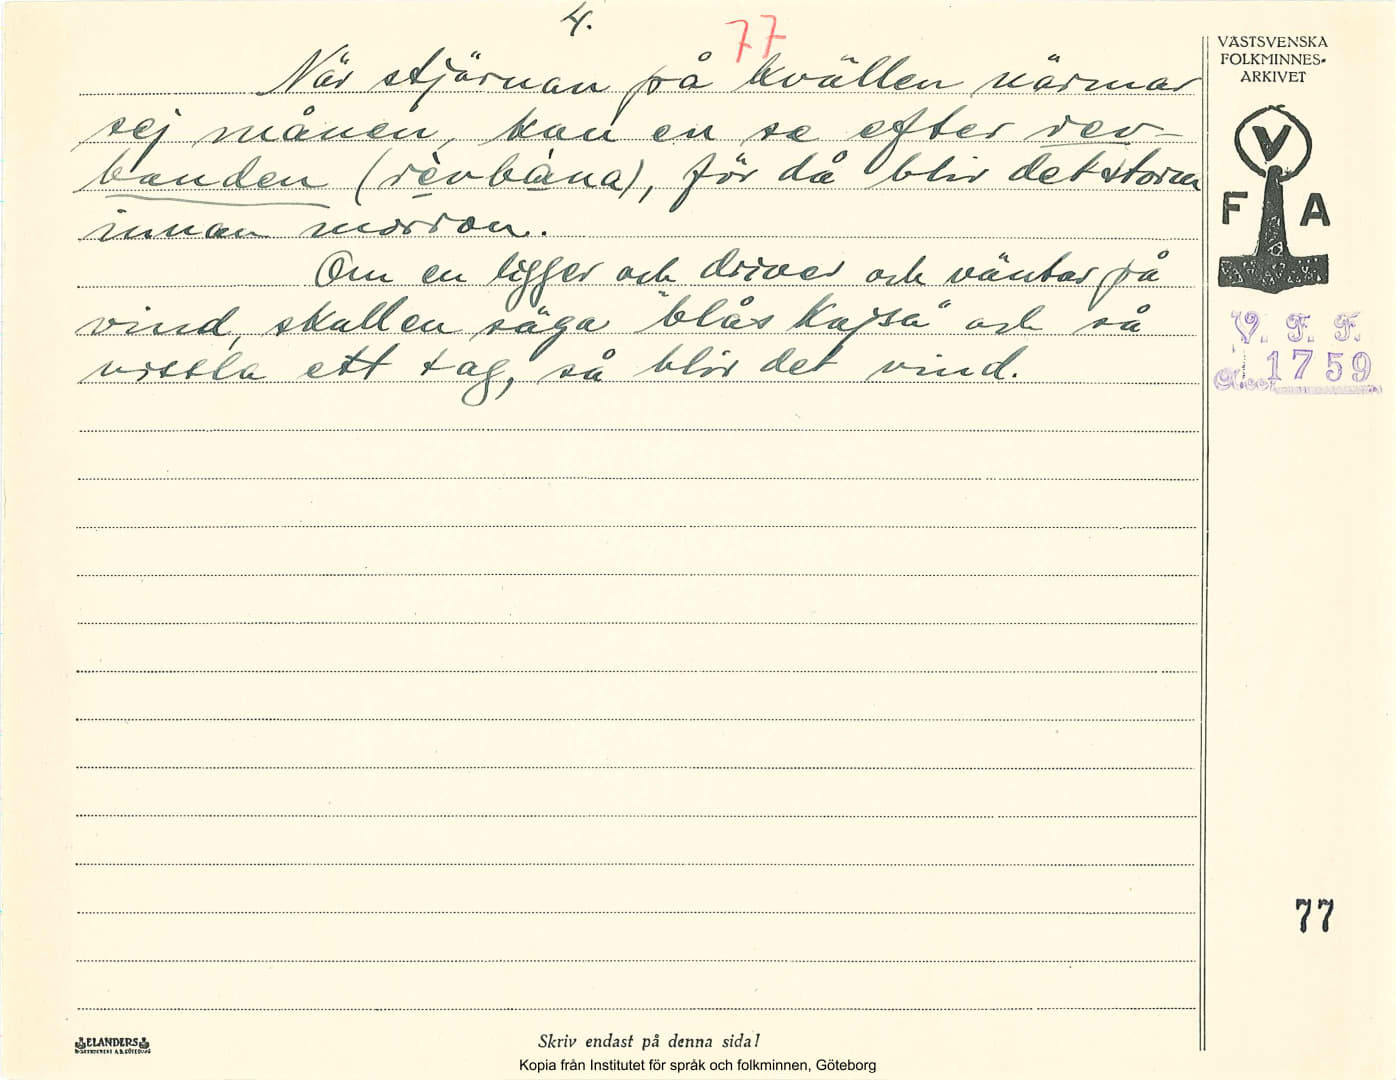 4.
77
När stjärnan på kvällen närmar
sej månen, kan en se efter rev-
banden (rèvbàna), för då blir det storm
innan morron.
Om en ligger och driver och väntar på
vind, skall en säga "blås Kajsa" och så
vissla ett tag, så blir det vind.
VÄSTSVENSKA
FOLKMINNES-
ARKIVET
V
F A
V. F. F.
Acc. 1759
77
ELANDERS
Skriv endast på denna sida!
Kopia från Institutet för språk och folkminnen, Göteborg